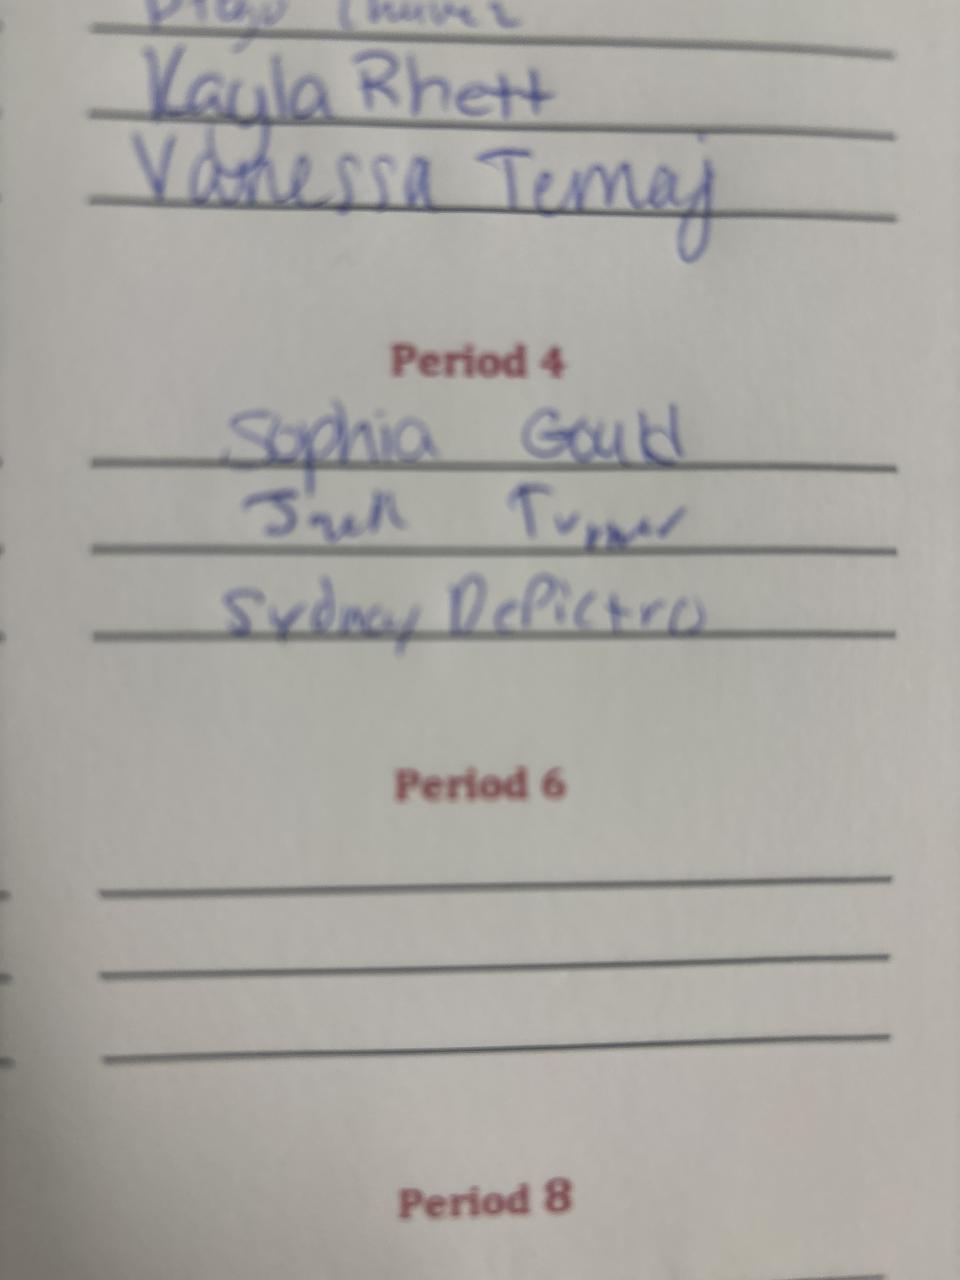 Kayla Rhett
Vanessa Temaj
Period 4
Sophia Gould
Jack Turner
Sydney DePietro
Period 6
Period 8